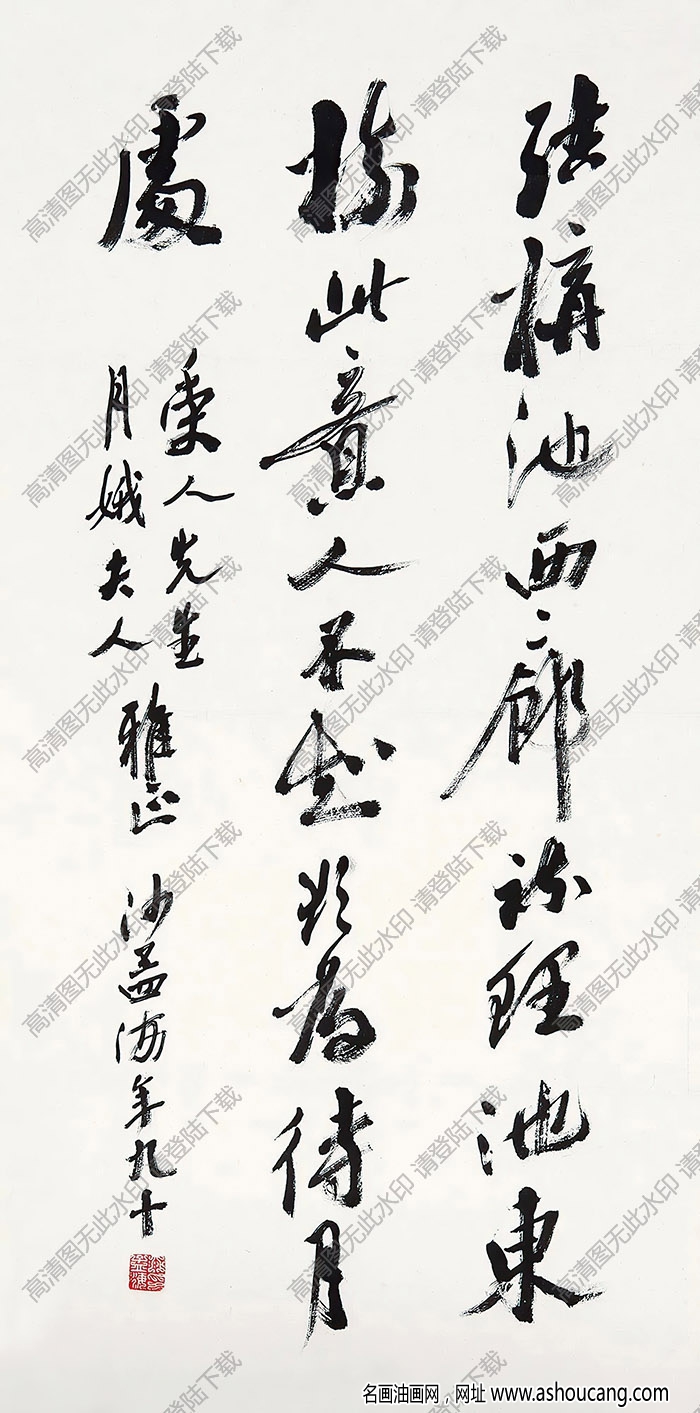 結構池西廊疏理池東
樹此意人不知欲為待月
處
人先生
月娥夫人 雅正 沙孟海年九十
高清图无此水印 请登陆下载
名画油画网，网址 www.ashoucang.com